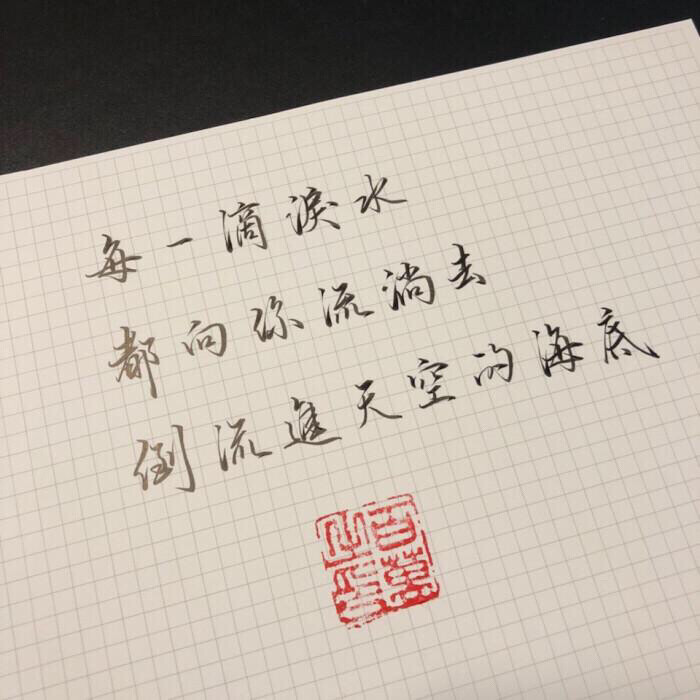 每一滴淚水
都向你流淌去
倒流進天空的海底